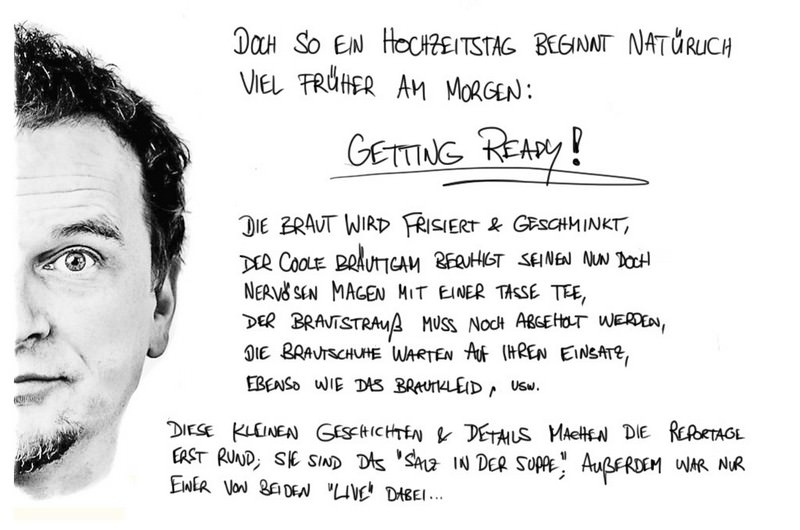 DOCH SO EIN HOCHZEITSTAG BEGINNT NATÜRLICH
VIEL FRÜHER AM MORGEN:
GETTING READY!
DIE BRAUT WIRD FRISIERT & GESCHMINKT,
DER COOLE BRÄUTIGAM BERUHIGT SEINEN NUN DOCH
NERVÖSEN MAGEN MIT EINER TASSE TEE,
DER BRAUTSTRAUß MUSS NOCH ABGEHOLT WERDEN,
DIE BRAUTSCHUHE WARTEN AUF IHREN EINSATZ,
EBENSO WIE DAS BRAUTKLEID, USW.
DIESE KLEINEN GESCHICHTEN & DETAILS MACHEN DIE REPORTAGE
ERST RUND; SIE SIND DAS "SALZ IN DER SUPPE"; AUßERDEM WAR NUR
EINER VON BEIDEN "LIVE" DABEI...